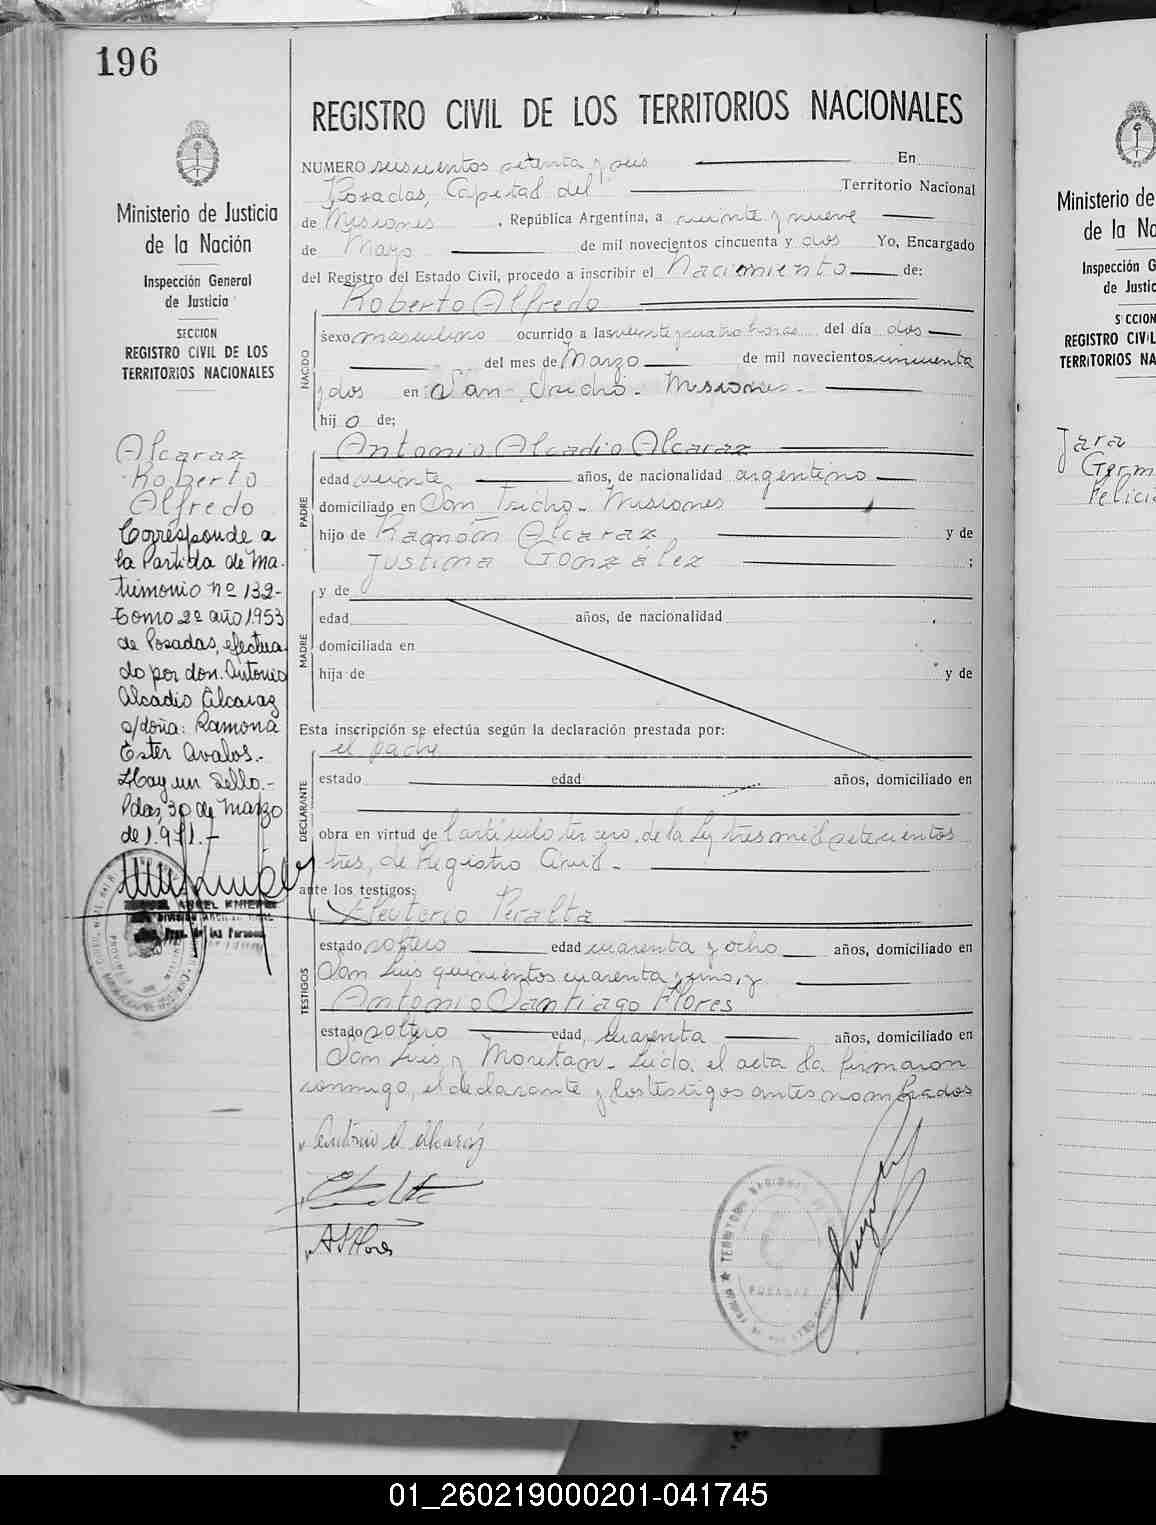 196
Ministerio de Justicia
de la Nación
Inspección General
de Justicia
SECCION
REGISTRO CIVIL DE LOS
TERRITORIOS NACIONALES
Alcaraz
Roberto
Alfredo
Corresponde a
la Partida de Ma-
trimonio nº 132-
Tomo 2º año 1953
de Posadas, efectua-
do por don. Antonio
Alcadio Alcaraz
c/doña: Ramona
Ester Avalos.-
Hay un Sello.-
Pdas, 30 de Marzo
de 1.971.-
REGISTRO CIVIL DE LOS TERRITORIOS NACIONALES
NUMERO seiscientos setenta y seis En
Posadas, Capital del Territorio Nacional
de Misiones, República Argentina, a veinte y nueve
de Mayo de mil novecientos cincuenta y dos Yo, Encargado
del Registro del Estado Civil, procedo a inscribir el Nacimiento de:
Roberto Alfredo
NACIDO
sexo masculino ocurrido a las veinte y cuatro horas del día dos
del mes de Marzo de mil novecientos cincuenta
y dos en San Isidro - Misiones -
hijo de;
Antonio Alcadio Alcaraz
PADRE
edad veinte años, de nacionalidad argentino
domiciliado en San Isidro - Misiones
hijo de Ramón Alcaraz y de
Justina González ;
y de
MADRE
edad años, de nacionalidad
domiciliada en
hija de y de
Esta inscripción se efectúa según la declaración prestada por:
el padre
DECLARANTE
estado edad años, domiciliado en
obra en virtud de l'artículo tercero, de la Ley tres mil setecientos
tres, de Registro Civil -
ante los testigos:
Eleuterio Peralta
TESTIGOS
estado soltero edad cuarenta y ocho años, domiciliado en
San Luis quinientos cuarenta y uno, y
Antonio Santiago Flores
estado soltero edad, cuarenta años, domiciliado en
San Luis y Moritan - Leída el acta la firmaron
conmigo, el declarante y los testigos antes nombrados
Antonio A Alcaraz
A S Flores
TERRITORIO NACIONAL
POSADAS
Ministerio de
de la Na
Inspección G
de Justic
SECCION
REGISTRO CIVIL
TERRITORIOS NA
Jara
Germ
Felici
01_260219000201-041745